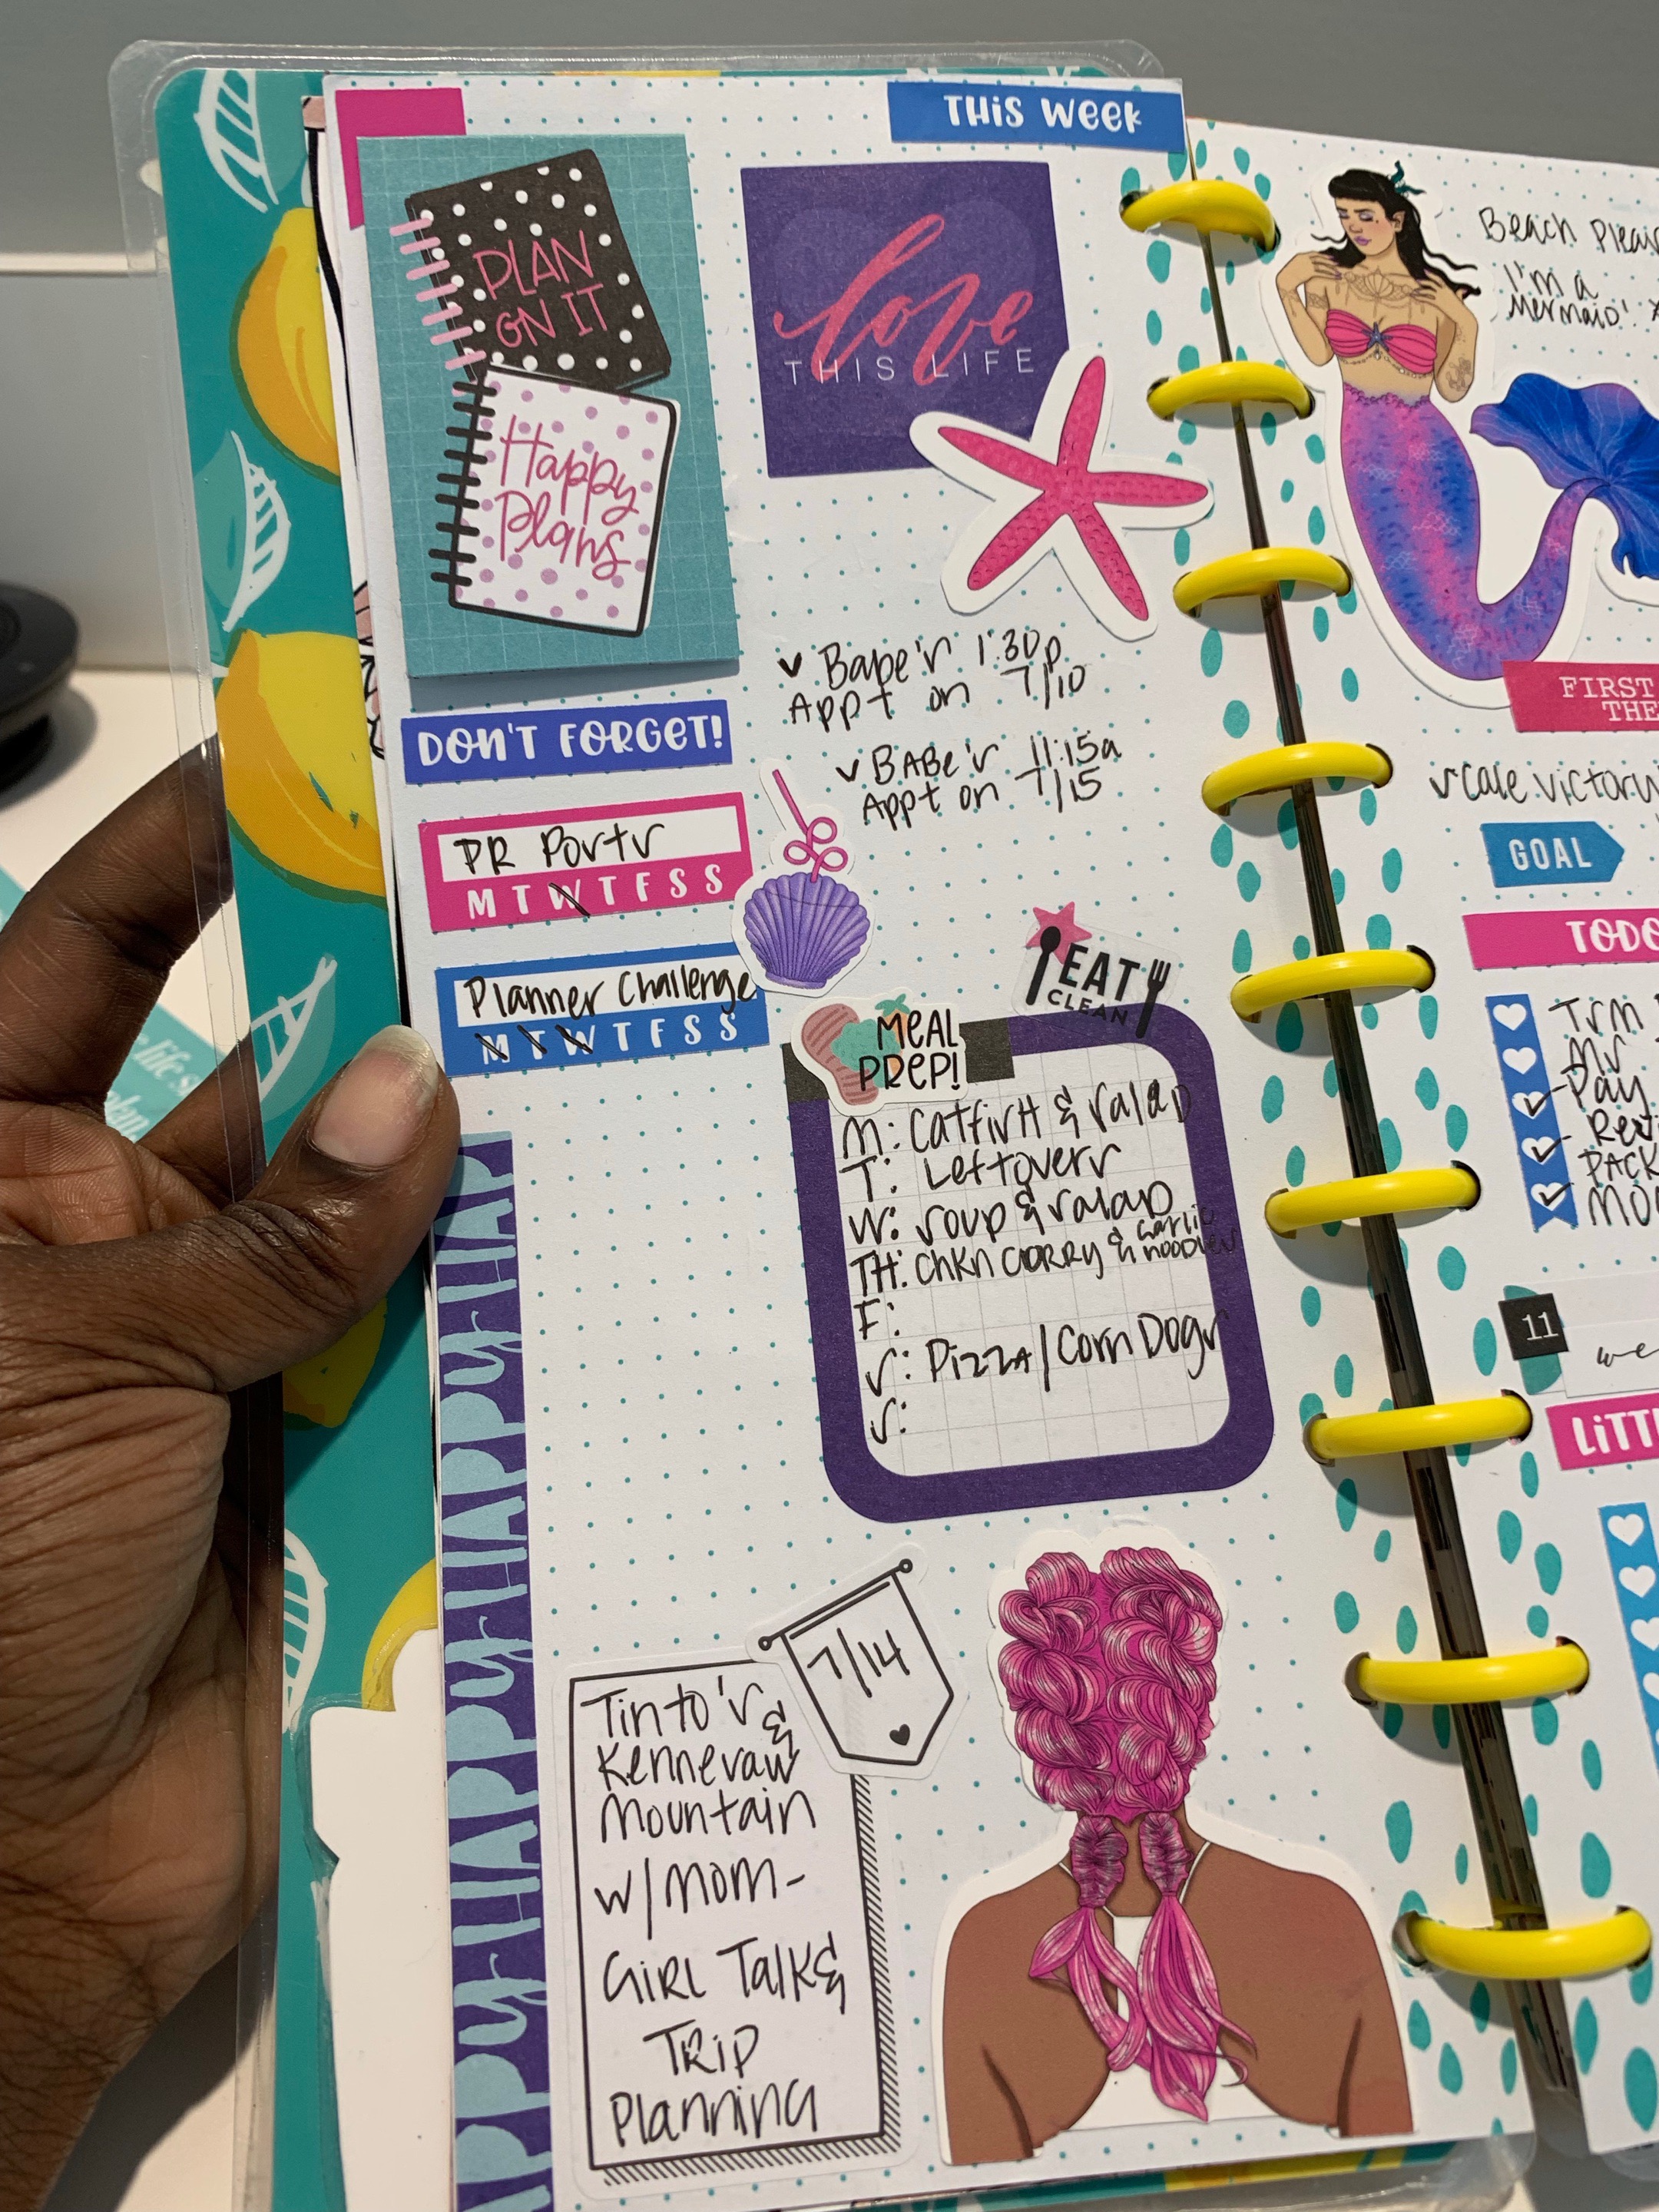 THIS WEEK
PLAN
ON IT
Happy
Plans
love
THIS LIFE
✓ Babe's 1:30p
Appt on 7/10
✓ BABE's 11:15a
Appt on 7/15
DON'T FORGET!
PR Posts
M T W T F S S
Planner Challenge
M T W T F S S
EAT
CLEAN
MEAL
PREP!
M: Catfish & salad
T: Leftovers
W: soup & salad
TH: Chkn curry & garlic noodles
F:
S: Pizza/Corn Dogs
S:
HAPPY HAPPY HAPPY HAPPY
7/14
Tinto's &
Kennesaw
Mountain
w/mom-
Girl Talk &
Trip
Planning
Beach Please
I'm a
Mermaid!
FIRST
THE
GOAL
TODO
Trm
Mr
Pay
PACK
11
we
LiTT